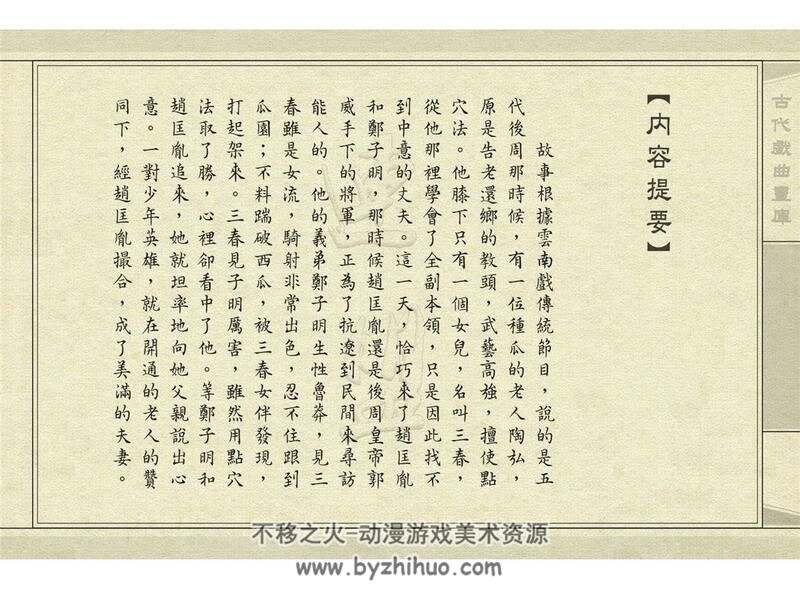 古代戲曲畫庫
【内容提要】
故事根據雲南戲傳統節目，說的是五
代後周那時候，有一位種瓜的老人陶弘，
原是告老還鄉的教頭，武藝高強，擅使點
穴法。他膝下只有一個女兒，名叫三春，
從他那裡學會了全副本領，只是因此找不
到中意的丈夫。這一天，恰巧來了趙匡胤
和鄭子明，那時候趙匡胤還是後周皇帝郭
威手下的將軍，正為了抗遼到民間來尋訪
能人的。他的義弟鄭子明生性魯莽，見三
春雖是女流，騎射非常出色，忍不住跟到
瓜園；不料踹破西瓜，被三春女伴發現，
打起架來。三春見子明厲害，雖然用點穴
法取了勝，心裡卻看中了他。等鄭子明和
趙匡胤追來，她就坦率地向她父親說出心
意。一對少年英雄，就在開通的老人的贊
同下，經趙匡胤撮合，成了美滿的夫妻。
不移之火-动漫游戏美术资源
www.byzhihuo.com